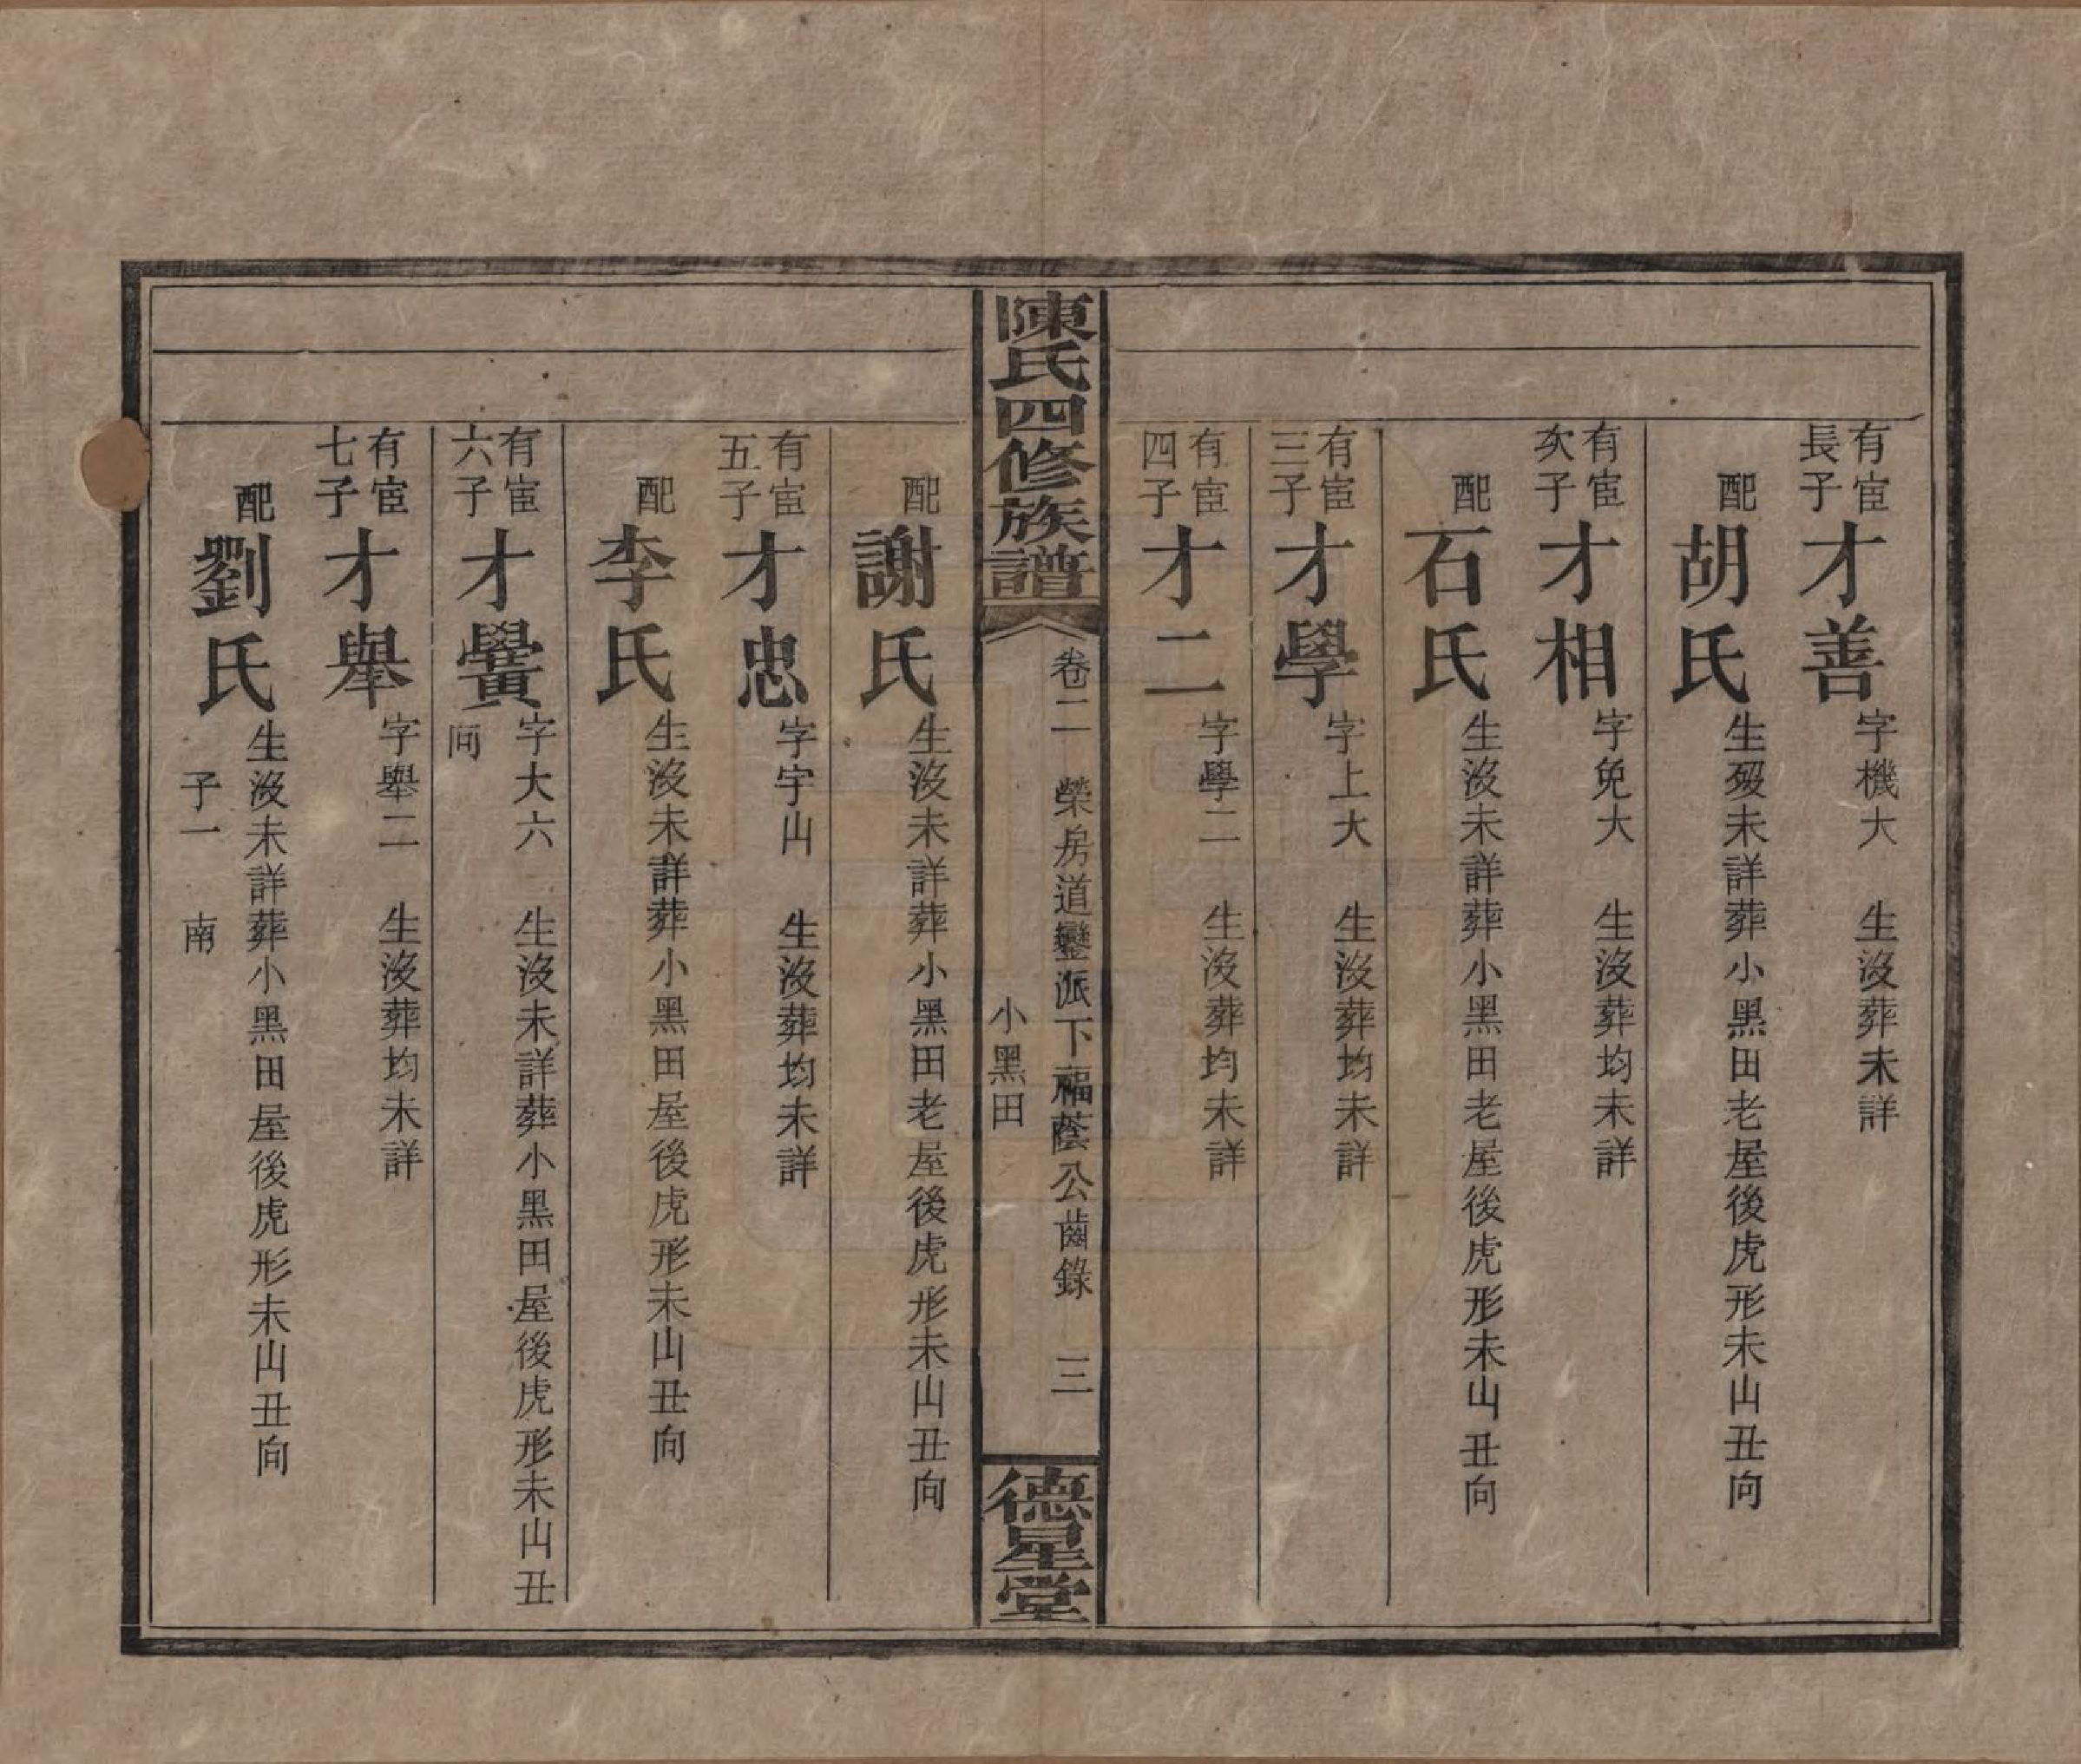 有宦長子才善字機大 生沒葬未詳
配胡氏生歿未詳葬小黑田老屋後虎形未山丑向
有宦次子才相字免大 生沒葬均未詳
配石氏生沒未詳葬小黑田老屋後虎形未山丑向
有宦三子才學字上大 生沒葬均未詳
有宦四子才二字學二 生沒葬均未詳
陳氏四修族譜
卷二 榮房道鑾派下福蔭公齒錄 三
小黑田
德星堂
配謝氏生沒未詳葬小黑田老屋後虎形未山丑向
有宦五子才忠字字山 生沒葬均未詳
配李氏生沒未詳葬小黑田屋後虎形未山丑向
有宦六子才黌字大六 生沒未詳葬小黑田屋後虎形未山丑
向
有宦七子才舉字舉二 生沒葬均未詳
配劉氏生沒未詳葬小黑田屋後虎形未山丑向
子一 南